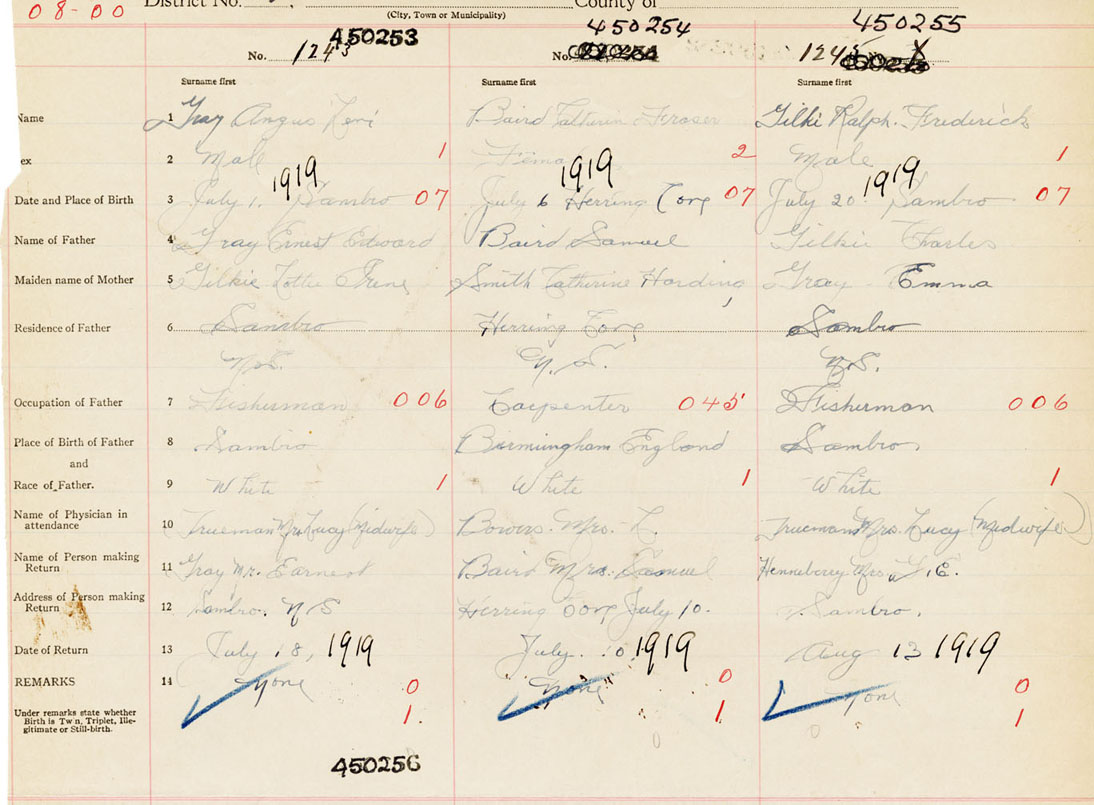 08-00 District No. County of
(City, Town or Municipality)
450253 450254 450255
No. 1243 No. 1245 X
Surname first Surname first Surname first
Name 1 Gray Angus Levi Baird Catherin Fraser Gilki Ralph. Frederick
ex 2 Male 1 Femal 2 Male 1
1919 1919 1919
Date and Place of Birth 3 July 1. Sambro 07 July 6 Herring Cove 07 July 20 Sambro 07
Name of Father 4 Gray Ernest Edward Baird Samuel Gilkie Charles
Maiden name of Mother 5 Gilkie Lottie Irene Smith Catherine Harding Gray Emma
Residence of Father 6 Sambro Herring Cove Sambro
N.S. N.S. N.S.
Occupation of Father 7 Fisherman 006 Carpenter 045 Fisherman 006
Place of Birth of Father 8 Sambro Birmingham England Sambro.
and
Race of Father. 9 White 1 White 1 White 1
Name of Physician in attendance 10 Trueman Mrs Lucy (Midwife) Bowers. Mrs. L. Trueman Mrs. Lucy (Midwife)
Name of Person making Return 11 Gray Mr. Earnest Baird Mrs. Samuel Henneberry Mrs E.
Address of Person making Return 12 Sambro. N S Herring Cove July 10. Sambro.
Date of Return 13 July 18, 1919 July. 10 1919 Aug 13 1919
REMARKS 14 None 0 None 0 None 0
Under remarks state whether Birth is Twin, Triplet, Illegitimate or Still-birth. 1. 1 1
450256